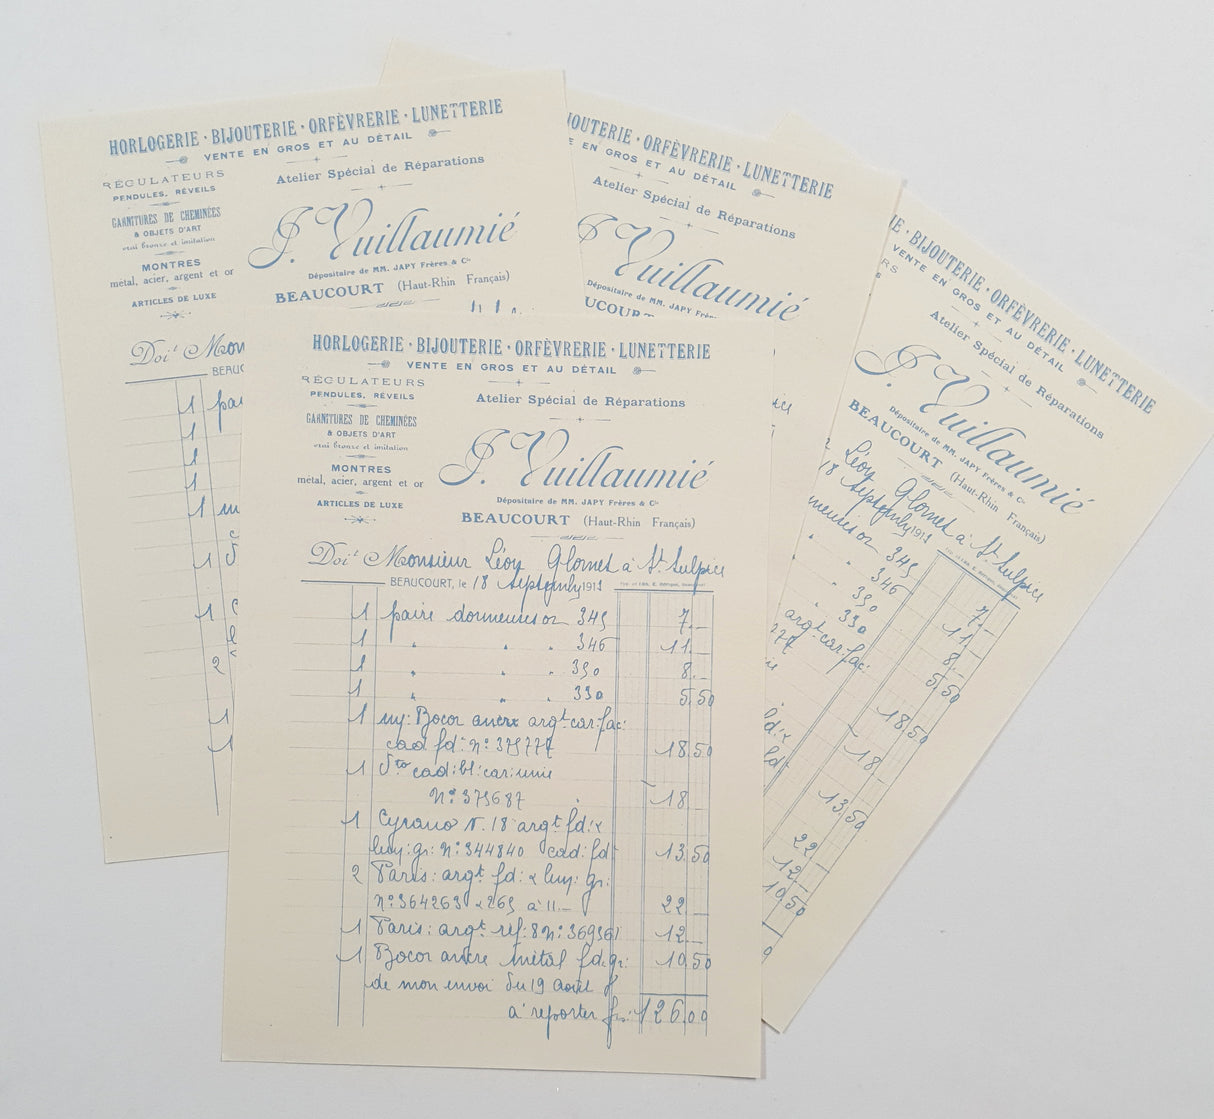 HORLOGERIE · BIJOUTERIE · ORFÈVRERIE · LUNETTERIE
VENTE EN GROS ET AU DÉTAIL
RÉGULATEURS
PENDULES, RÉVEILS
GARNITURES DE CHEMINÉES
& OBJETS D'ART
vrai bronze et imitation
MONTRES
métal, acier, argent et or
ARTICLES DE LUXE
Atelier Spécial de Réparations
J. Vuillaumié
Dépositaire de MM. JAPY Frères & Cie
BEAUCOURT (Haut-Rhin Français)
Doit Mon
BEAUC
1 pai
1
1
1
1 m
1
1
2
1
1
JOUTERIE · ORFÈVRERIE · LUNETTERIE
E EN GROS ET AU DÉTAIL
Atelier Spécial de Réparations
J. Vuillaumié
Dépositaire de MM. JAPY Frèr
UCOUR
IE · BIJOUTERIE · ORFÈVRERIE · LUNETTERIE
VENTE EN GROS ET AU DÉTAIL
RS
S
Atelier Spécial de Réparations
J. Vuillaumié
Dépositaire de MM. JAPY Frères & Cie
BEAUCOURT (Haut-Rhin Français)
Léon Glornet à St Sulpice
18 septembre 1911
meuses or 345 7.-
346 11.-
350 8.-
330 5.50
argt car: fac:
777 18.50
18.-
13.50
22
12
10.50
HORLOGERIE · BIJOUTERIE · ORFÈVRERIE · LUNETTERIE
VENTE EN GROS ET AU DÉTAIL
RÉGULATEURS
PENDULES, RÉVEILS
GARNITURES DE CHEMINÉES
& OBJETS D'ART
vrai bronze et imitation
MONTRES
métal, acier, argent et or
ARTICLES DE LUXE
Atelier Spécial de Réparations
J. Vuillaumié
Dépositaire de MM. JAPY Frères & Cie
BEAUCOURT (Haut-Rhin Français)
Doit Monsieur Léon Glornet à St Sulpice
BEAUCOURT, le 18 septembre 1911
1 paire dormeuses or 345 7.-
1 " " " 346 11.-
1 " " " 350 8.-
1 " " " 330 5.50
1 my: Bocor ancre argt car: fac:
cad fd: No: 375777 18.50
1 dto cad: bl: car: unie
No: 375687 18 -
1 Cyrano N. 18 argt fd: &
luy: gr: No: 344840 cad: fdt 13.50
2 Paris: argt fd: & luy: gr:
No: 364263 & 265 à 11.- 22 -
1 Paris: argt ref: 8 No: 369561 12 -
1 Bocor ancre métal fd. gr: 10.50
de mon envoi du 19 août
à reporter frs: 126.00